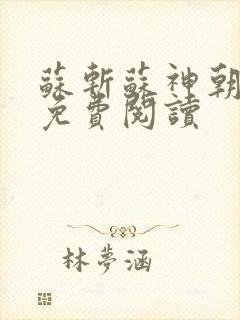 蘇斬蘇神朝
免費閱讀
林夢涵